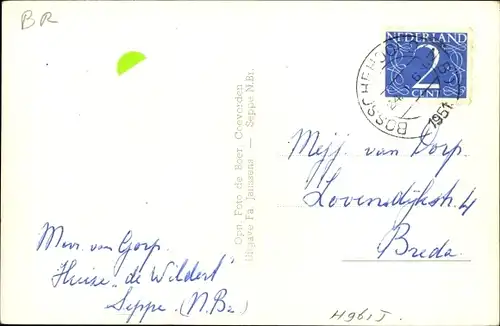 BR
NEDERLAND
2
CENT
BOSSCHENHOOFD
1951
Opn Foto de Boer Coevorden
Uitgave Fa Janssens — Seppe N.Br.
Mejj. van Dorp.
Lovensdijkstr. 4
Breda.
Mevr. van Gorp.
Huize „de Wildert"
Seppe. (N.Br.)
H961J